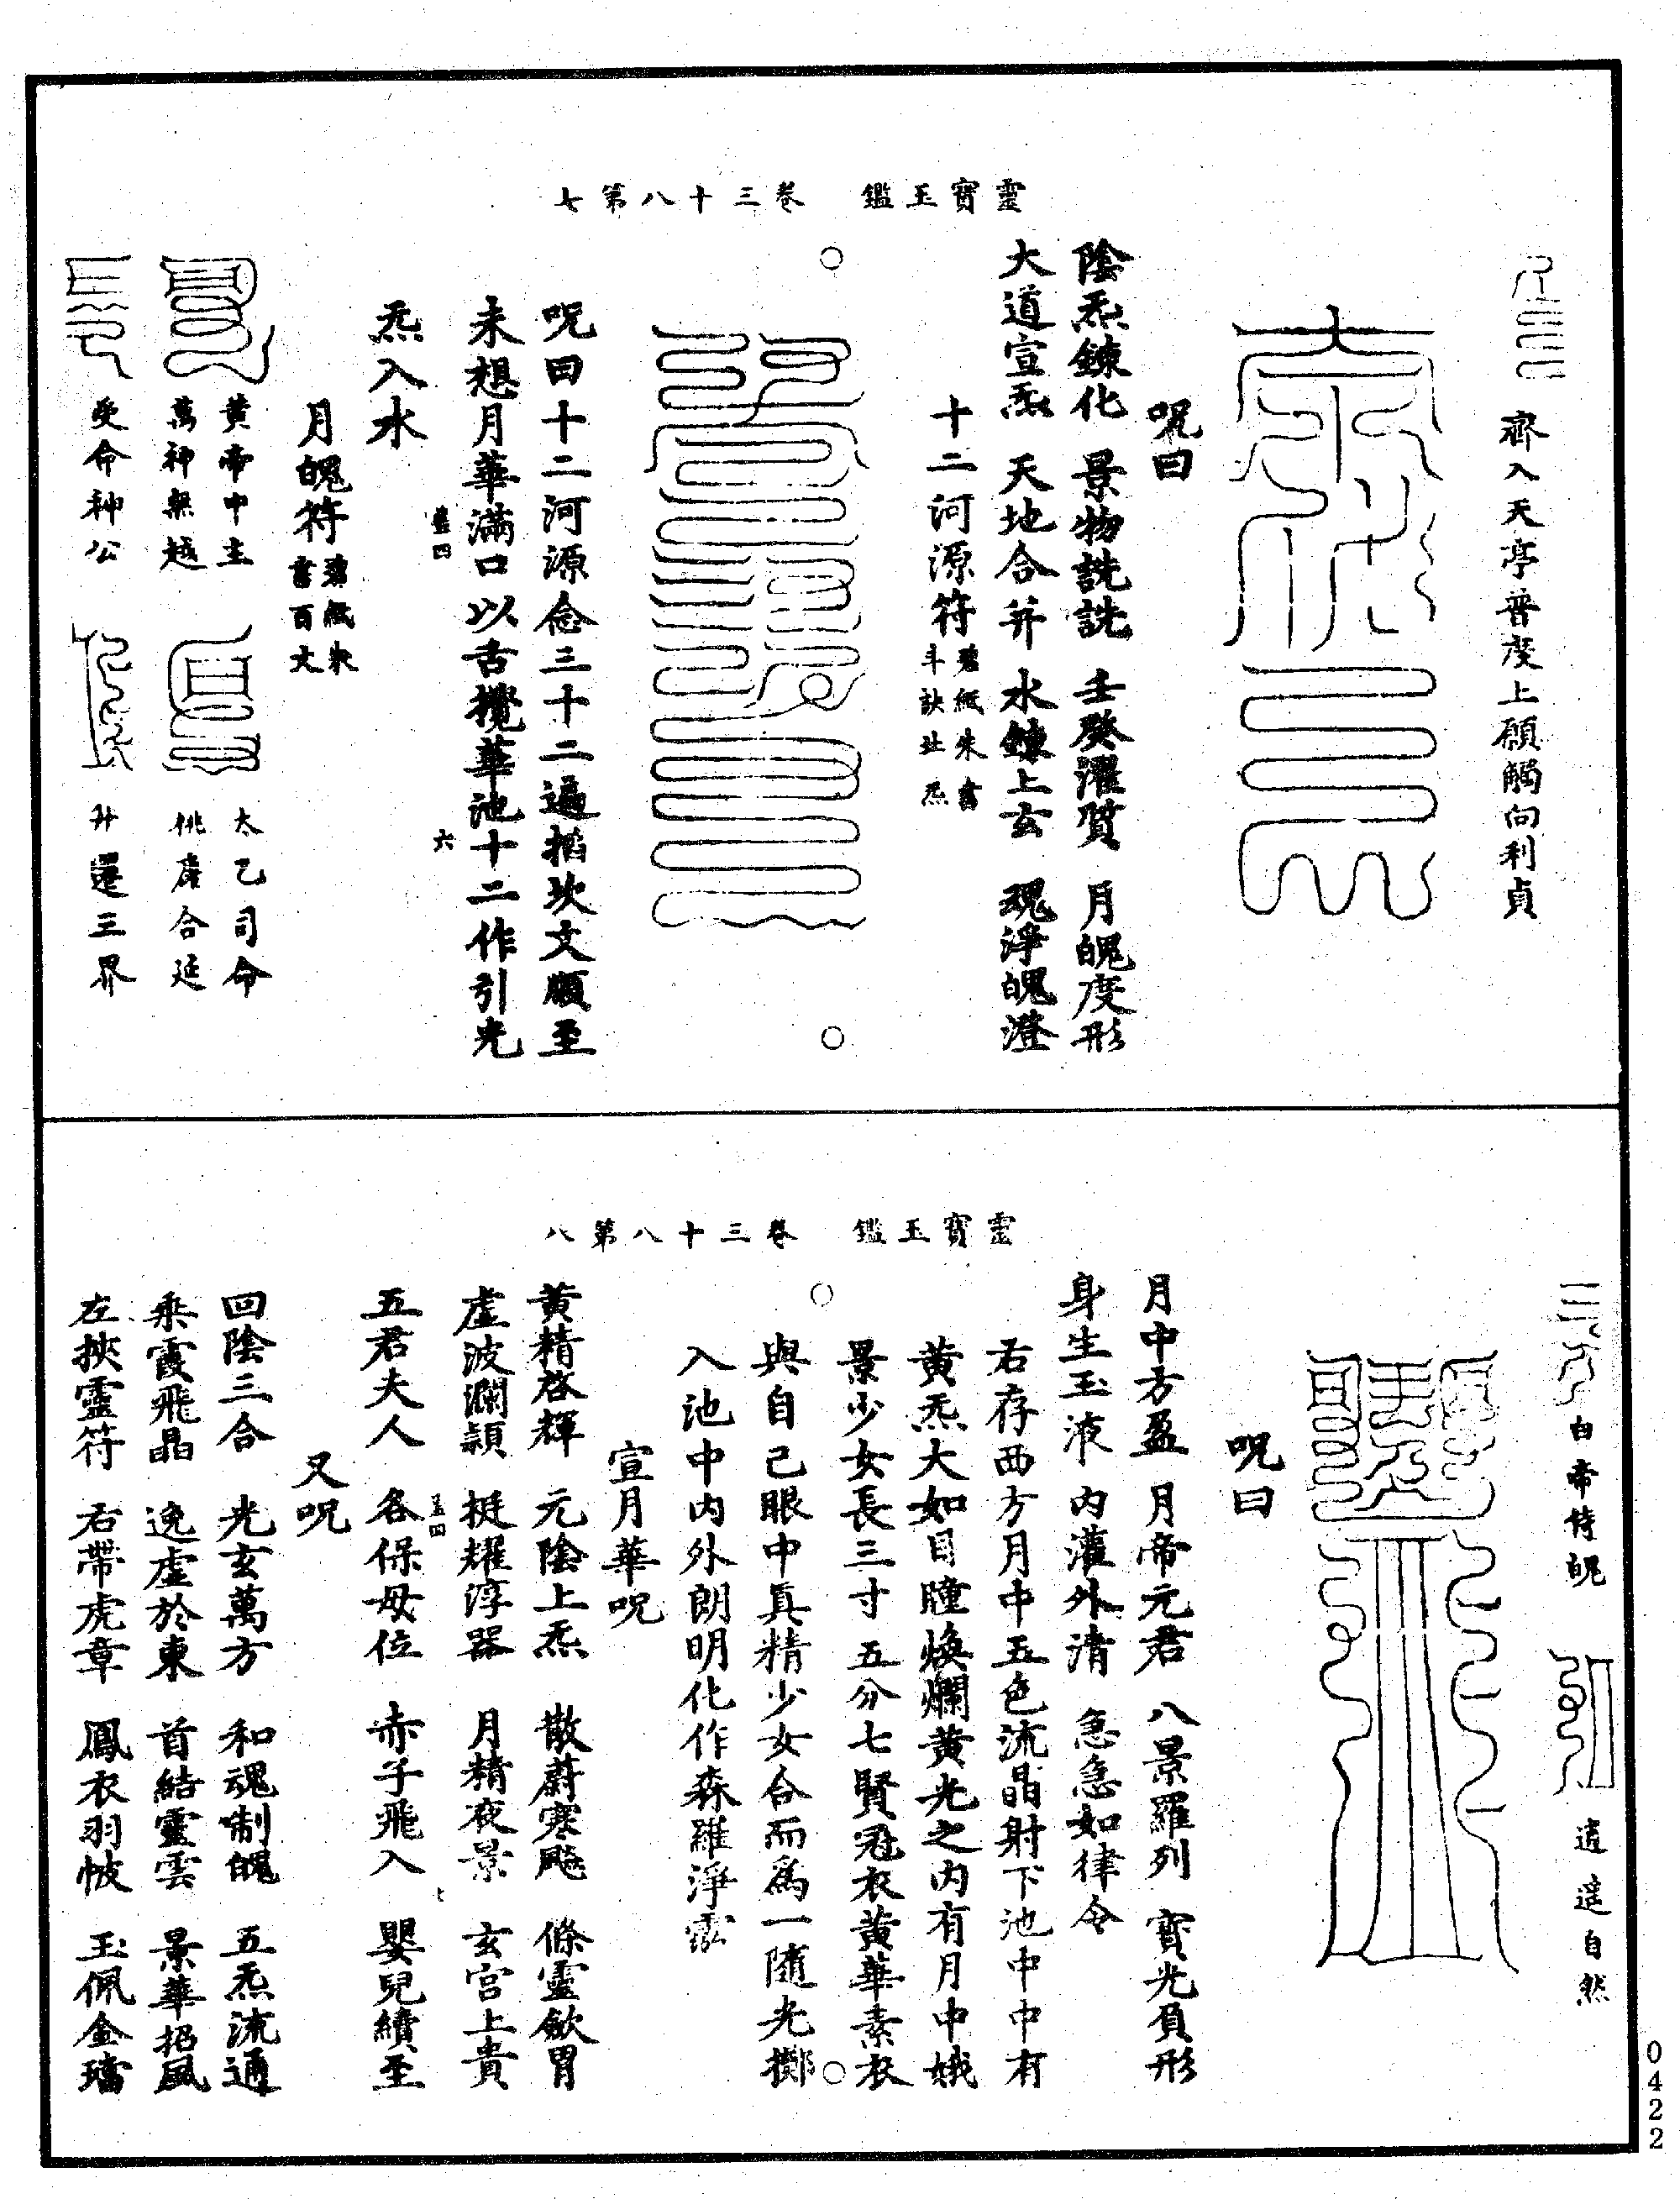 靈寶玉鑑　卷三十八第七
齋入天亭普度上願觸向利貞
呪曰
陰炁鍊化　景物詵詵　壬癸濯質　月魄度形
大道宣炁　天地合并　水鍊上玄　魂淨魄澄
十二河源符
碧紙朱書
斗訣北炁
呪曰十二河源念三十二遍掐坎文願至
未想月華滿口以舌攪華池十二作引光
盡四　六
炁入水
月魄符
碧紙朱
書百丈
黃帝中主
萬神無越
太乙司命
桃康合延
受命神公
升還三界
靈寶玉鑑　卷三十八第八
白帝侍魄
逍遙自然
呪曰
月中方盈　月帝元君　八景羅列　寶光負形
身生玉液　內灌外清　急急如律令
右存西方月中五色流晶射下池中中有
黃炁大如目瞳煥爛黃光之內有月中娥
景少女長三寸五分七賢冠衣黃華素衣
與自己眼中真精少女合而為一隨光擲
入池中內外朗明化作森羅淨泓
宣月華呪
黃精啓輝　元陰上炁　散蔚寒飈　條靈斂胃
虛波瀾穎　挺耀淳器　月精夜景　玄宮上貴
五君夫人　各保母位　赤子飛入　嬰兒續至
又呪
回陰三合　光玄萬方　和魂制魄　五炁流通
乘霞飛晶　逸虛於東　首結靈雲　景華招風
左挾靈符　右帶虎章　鳳衣羽帔　玉佩金璫
0422